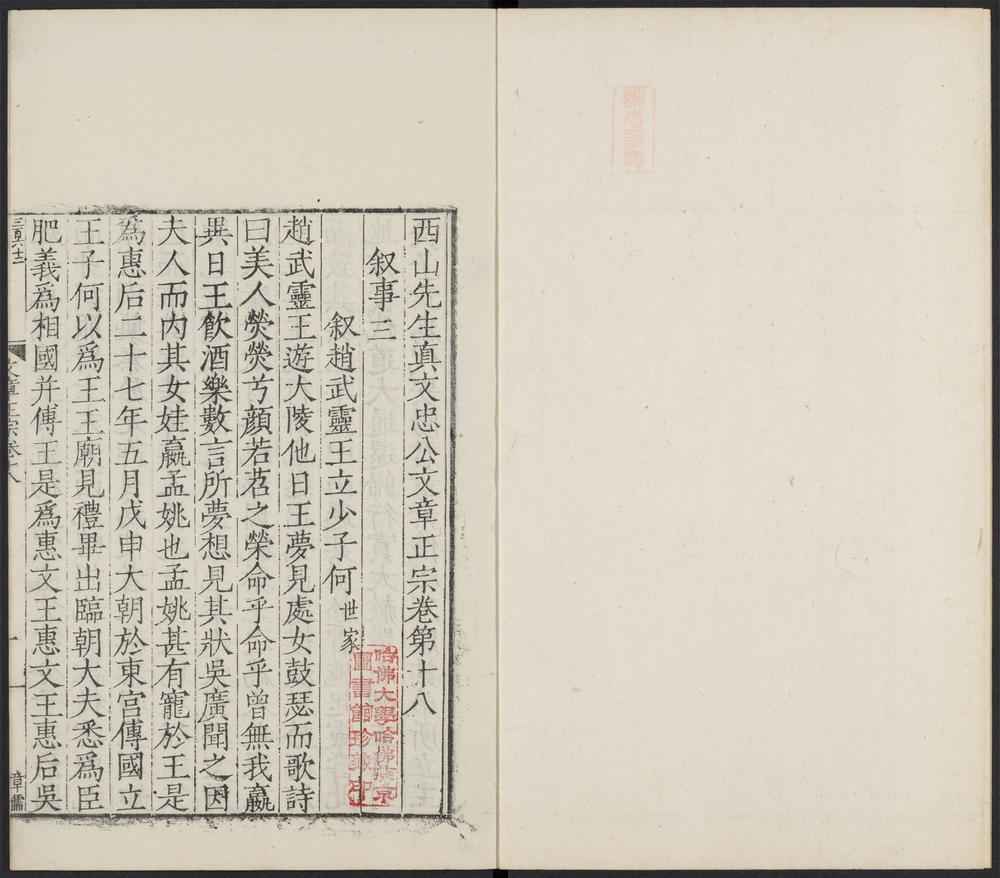 西山先生真文忠公文章正宗卷第十八
叙事三
叙趙武靈王立少子何世家
趙武靈王遊大陵他日王夢見處女鼓瑟而歌詩
曰美人熒熒兮顔若苕之榮命乎命乎曾無我嬴
異日王飲酒樂數言所夢想見其狀吳廣聞之因
夫人而内其女娃嬴孟姚也孟姚甚有寵於王是
爲惠后二十七年五月戊申大朝於東宫傳國立
王子何以爲王王廟見禮畢出臨朝大夫悉爲臣
肥義爲相國并傅王是爲惠文王惠文王惠后吳
文章正宗卷十八
一
章儒
哈佛大學哈佛燕京
圖書館珍藏印